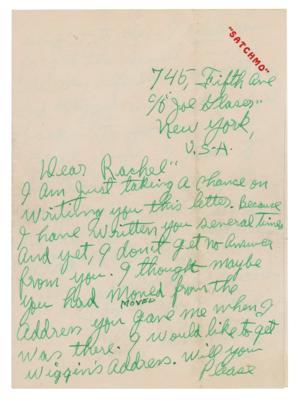 "SATCHMO"
745, Fifth Ave
c/o "Joe Glaser"
New York,
U.S.A.
Dear Rachel"
I am Just taking a chance on
writing you this letter. Because
I have written you several times
and yet, I don't get no Answer
From you. I thought maybe
you had moved from the
MOVED
Address you gave me when I
was there. I would like to get
Wiggin's Address. Will you
Please